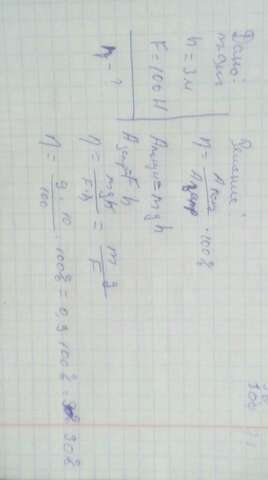 Дано:
m=9кг
h = 3м
F = 100 Н
η - ?
Решение:
η = Aпол / Aзатр · 100%
Aпол = mgh
Aзатр = F h
η = mgh / F·h = mg / F
η = 9 · 10 / 100 · 100% = 0,9 100% = 90%